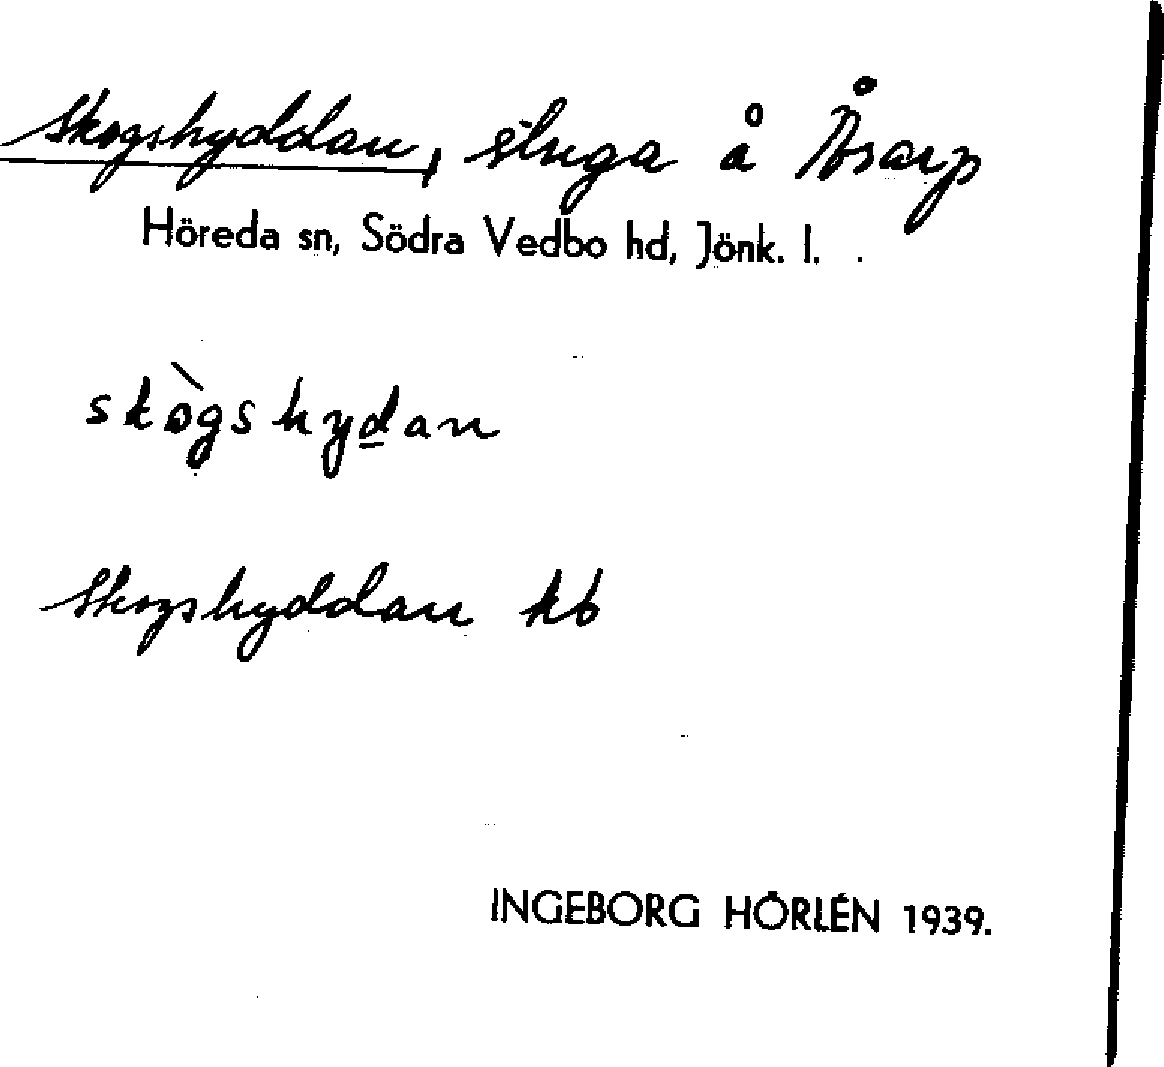 Skogshyddan, stuga å Åsarp
Höreda sn, Södra Vedbo hd, Jönk. l.
skògshydan
Skogshyddan kb
INGEBORG HÖRLÉN 1939.